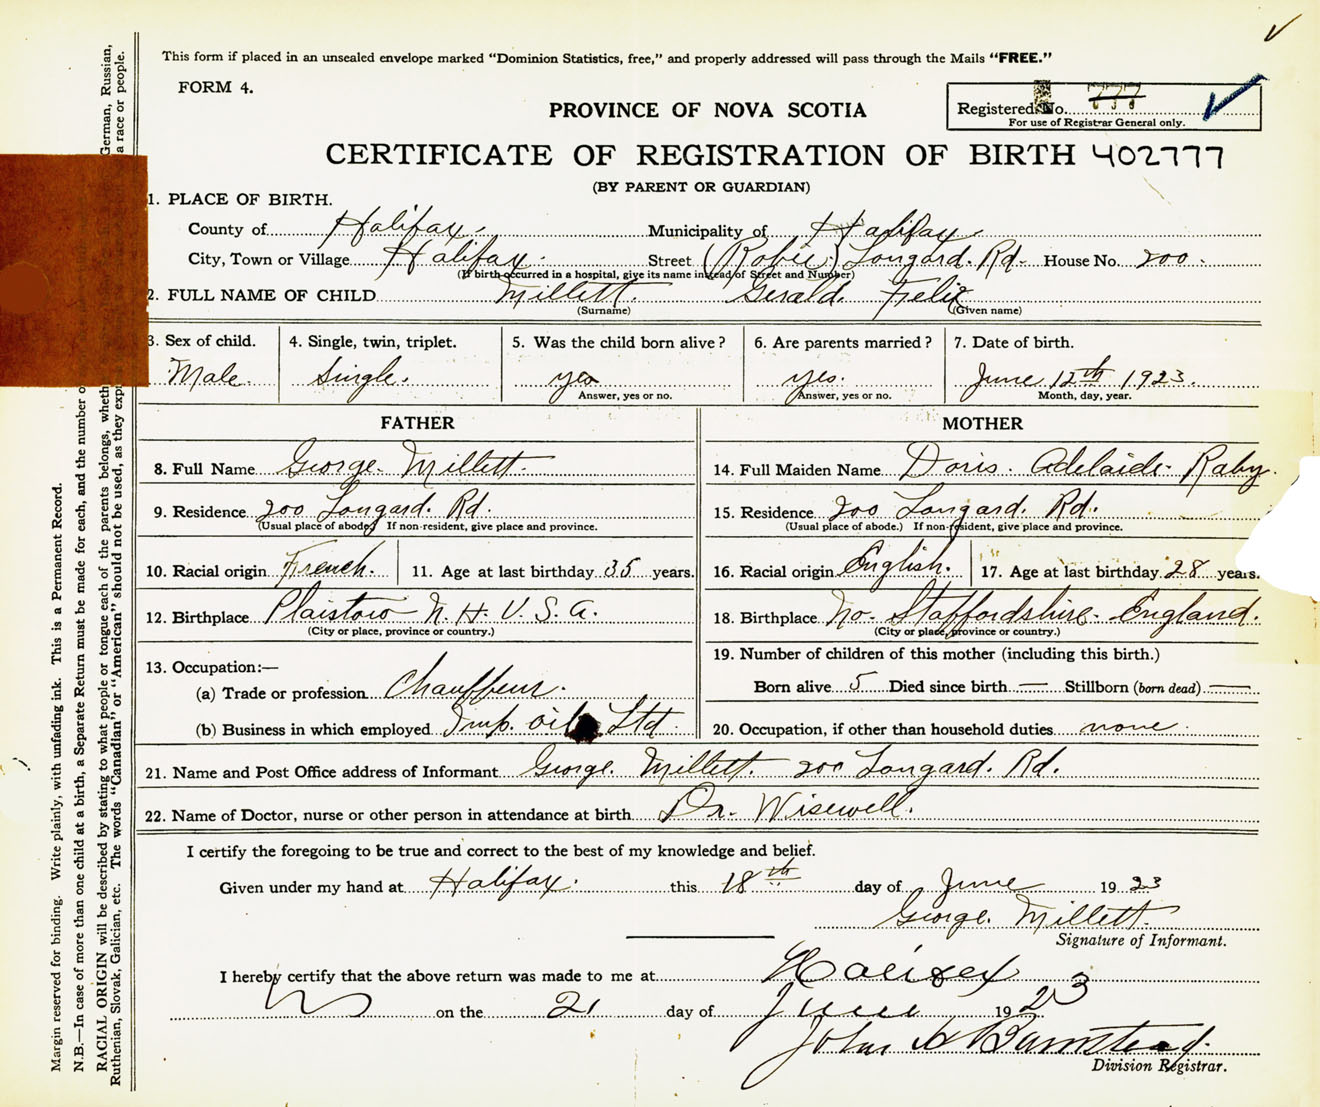 This form if placed in an unsealed envelope marked "Dominion Statistics, free," and properly addressed will pass through the Mails "FREE."
FORM 4.
PROVINCE OF NOVA SCOTIA
Registered No. 777
For use of Registrar General only.
CERTIFICATE OF REGISTRATION OF BIRTH 402777
(BY PARENT OR GUARDIAN)
1. PLACE OF BIRTH.
County of Halifax. Municipality of Halifax.
City, Town or Village Halifax. Street (Robie) Longard. Rd. House No. 200.
(If birth occurred in a hospital, give its name instead of Street and Number)
2. FULL NAME OF CHILD Millett. Gerald. Felix
(Surname) (Given name)
3. Sex of child. 4. Single, twin, triplet. 5. Was the child born alive? 6. Are parents married? 7. Date of birth.
Male. Single. yes yes. June 12th 1923.
Answer, yes or no. Answer, yes or no. Month, day, year.
FATHER MOTHER
8. Full Name George. Millett. 14. Full Maiden Name Doris. Adelaide. Raby.
9. Residence 200 Longard. Rd. 15. Residence 200 Longard. Rd.
(Usual place of abode) If non-resident, give place and province. (Usual place of abode.) If non-resident, give place and province.
10. Racial origin French. 11. Age at last birthday 35 years. 16. Racial origin English. 17. Age at last birthday 28 years.
12. Birthplace Plaistow N. H. U. S. A. 18. Birthplace No. Staffordshire. England.
(City or place, province or country.) (City or place, province or country.)
13. Occupation:— 19. Number of children of this mother (including this birth.)
(a) Trade or profession Chauffeur. Born alive 5 Died since birth — Stillborn (born dead) —
(b) Business in which employed Imp. oil Ltd. 20. Occupation, if other than household duties none.
21. Name and Post Office address of Informant George. Millett. 200 Longard. Rd.
22. Name of Doctor, nurse or other person in attendance at birth Dr. Wisewell.
I certify the foregoing to be true and correct to the best of my knowledge and belief.
Given under my hand at Halifax. this 18th day of June 1923
George. Millett.
Signature of Informant.
I hereby certify that the above return was made to me at Halifax
NS on the 21 day of June 1923
John A Barnstead.
Division Registrar.
Margin reserved for binding. Write plainly, with unfading ink. This is a Permanent Record.
N.B.—In case of more than one child at a birth, a Separate Return must be made for each, and the number o
RACIAL ORIGIN will be described by stating to what people or tongue each of the parents belongs, wheth German, Russian,
Ruthenian, Slovak, Galician, etc. The words "Canadian" or "American" should not be used, as they exp a race or people.